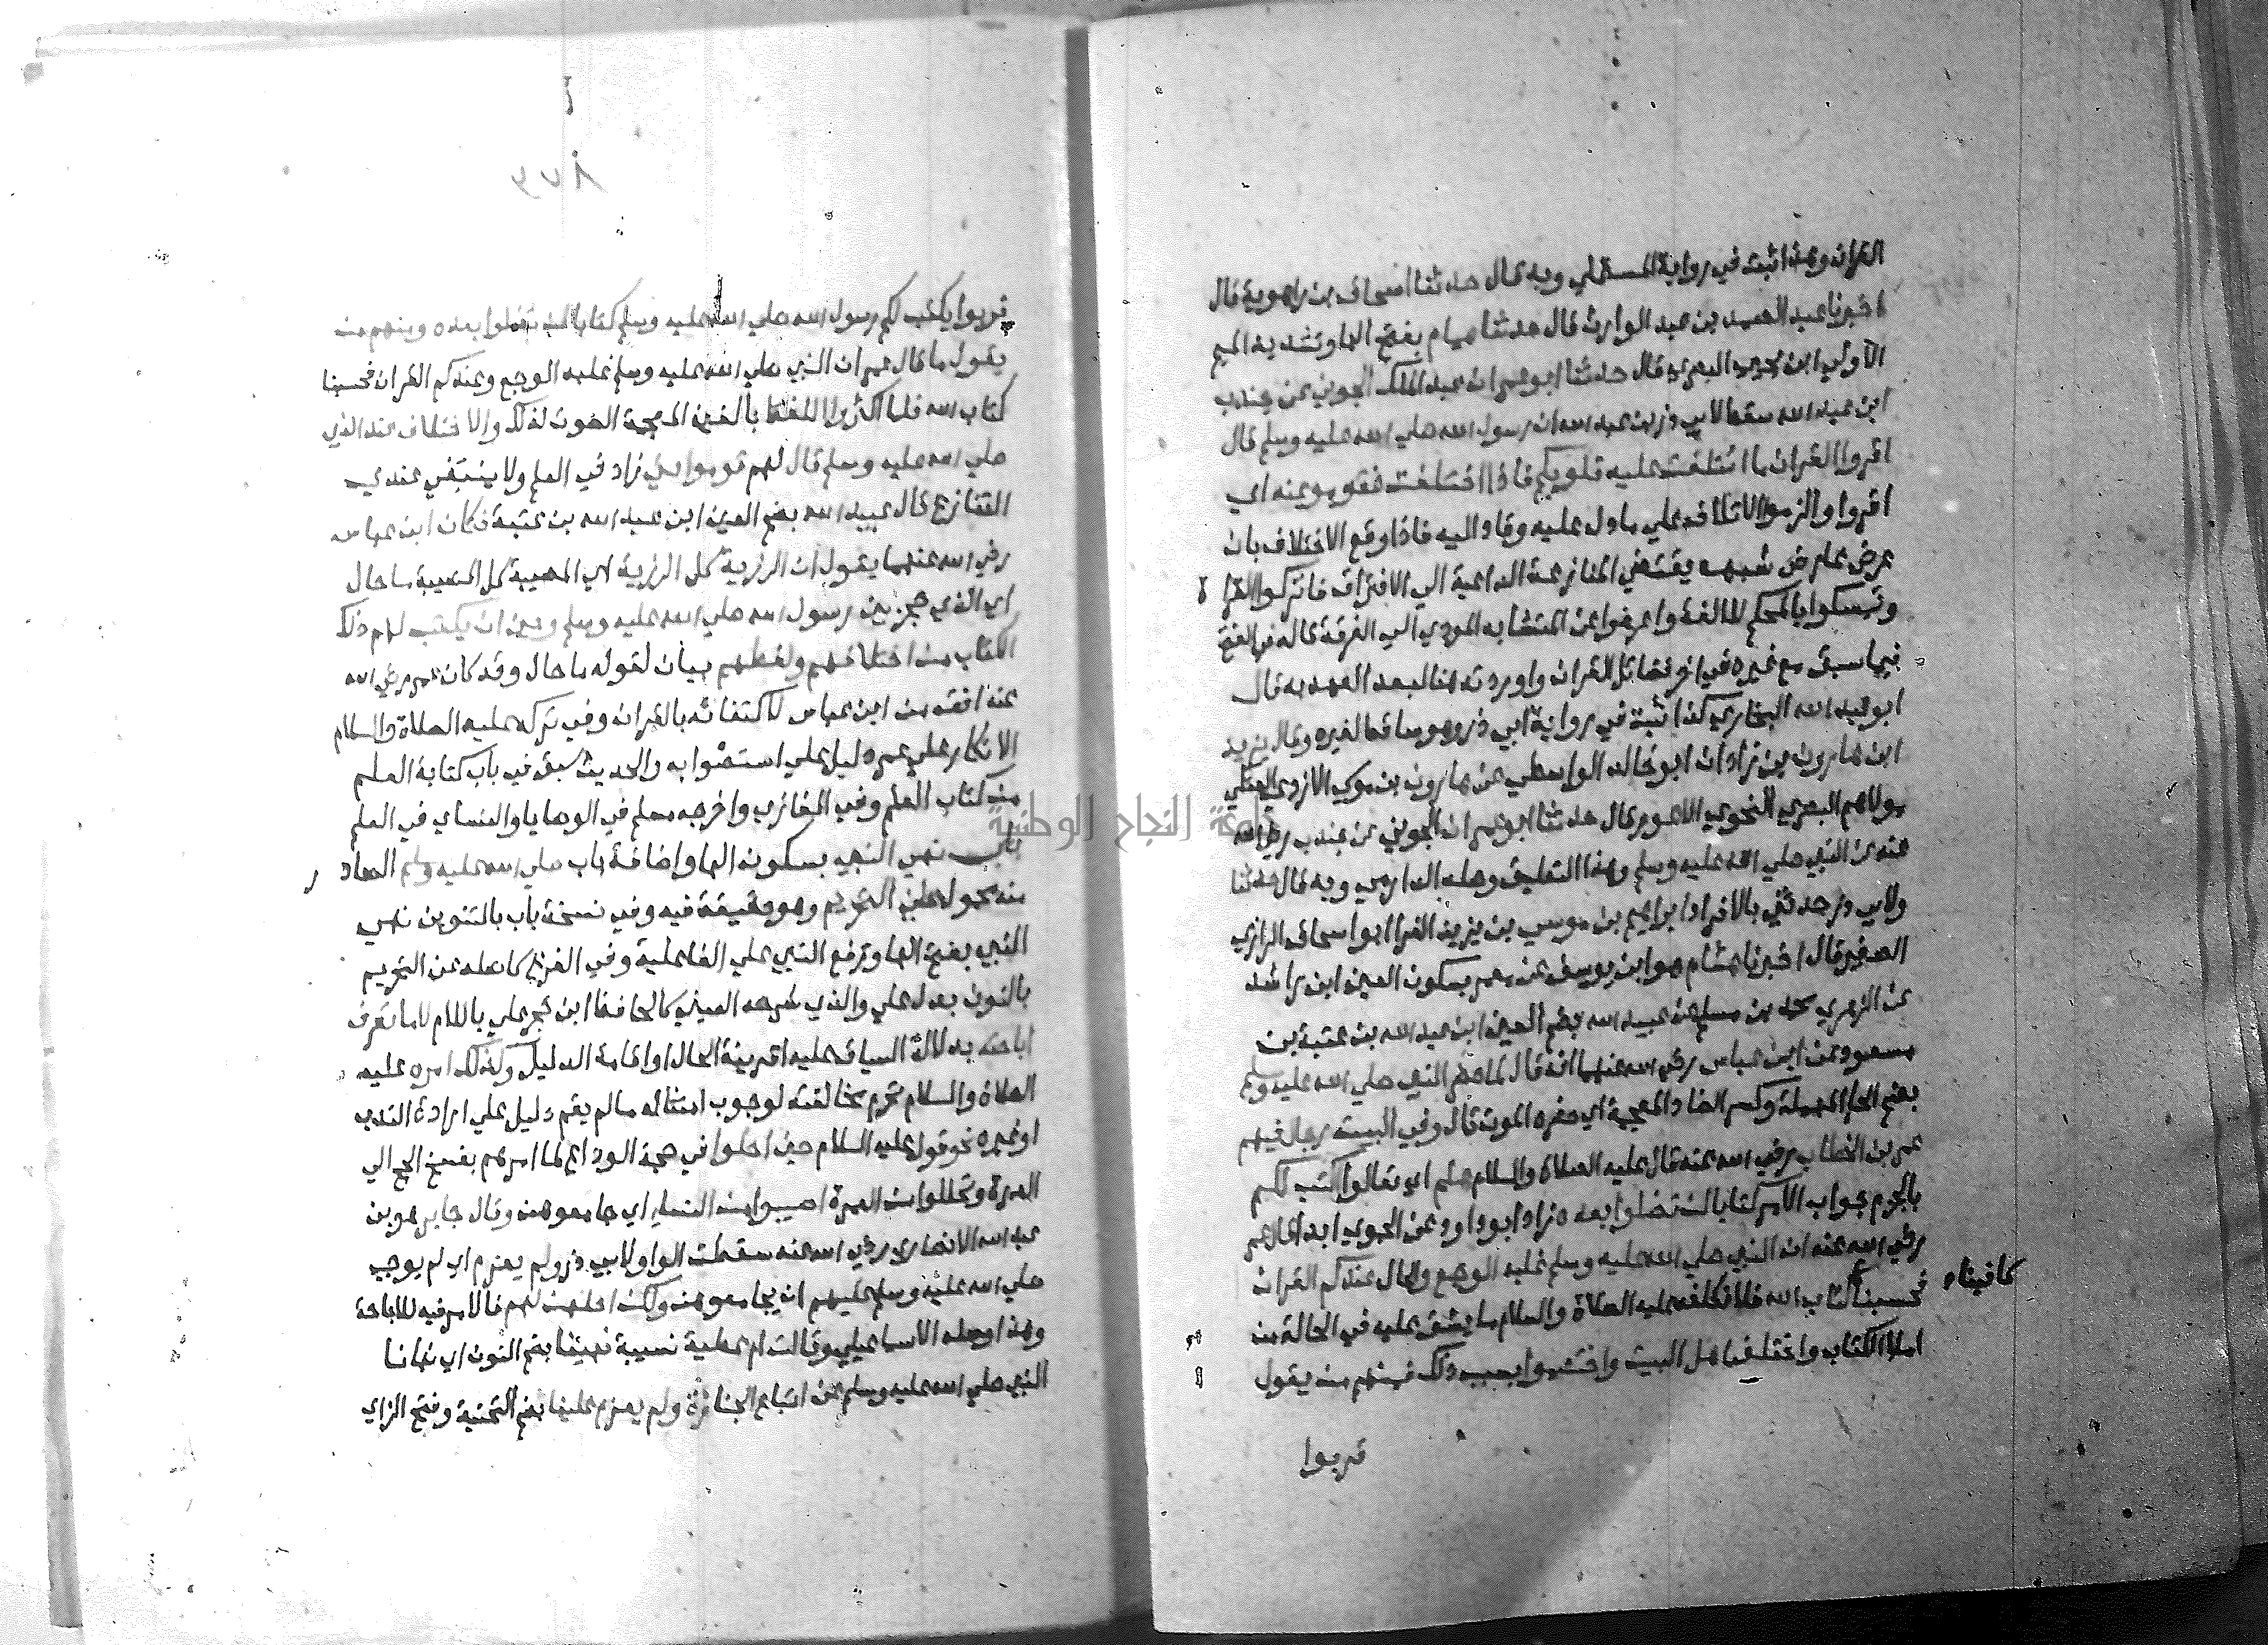 القران وهذا اثبت في رواية المستملي وبه قال حدثنا اسحاق بن راهوية قال
اخبرنا عبد الصمد بن عبد الوارث قال حدثنا همام بفتح الها وتشديد الميم
الاولي ابن يحيى البصري قال حدثنا ابو عمران عبد الملك الجوني عن جندب
ابن عبد الله سقط لابي ذر بن عبد الله ان رسول الله صلي الله عليه وسلم قال
اقروا القران ما ائتلفت عليه قلوبكم فاذا اختلفت فقوموا عنه اي
اقروا والزموا الائتلاف علي ما دل عليه وقاد اليه فاذا وقع الاختلاف بان
عرض عارض شبهه يقتضي المنازعة الداعية الي الافتراق فاتركوا القرا ة
وتمسكوا بالمحكم للالفة واعرضوا عن المتشابه المودي الي الفرقة قاله في الفتح
فيما سبق مع غيره في اخر فضائل القران واوردته هنا لبعد العهد به قال
ابو عبد الله البخاري كذا ثبت في رواية ابي ذر وهو ساقط لغيره وقال يزيد
ابن هارون بن زاذان ابو خالد الواسطي عن هارون بن موسي الازدي العتكي
مولاهم البصري النحوي الاعور قال حدثنا ابو عمران الجوني عن جندب رضي الله
عنه عن النبي صلي الله عليه وسلم وهذا التعليق وصله الدارمي وبه قال حدثنا
ولابي ذر حدثني بالافراد ابراهيم بن موسي بن يزيد الفرا ابو اسحاق الرازي
الصغير قال اخبرنا هشام هو ابن يوسف عن معمر بسكون العين ابن راشد
عن الزهري محمد بن مسلم عن عبيد الله بضم العين ابن عبد الله بن عتبة بن
مسعود عن ابن عباس رضي الله عنهما انه قال لما حضر النبي صلي الله عليه وسلم
بضم الحا المهملة وكسر الضاد المعجمة اي حضره الموت قال وفي البيت رجال فيهم
عمر بن الخطاب رضي الله عنه قال عليه الصلاة والسلام هلم اي تعالوا اكتب لكم
بالجزم جواب الامر كتابا لن تضلوا بعده زاد ابو داود عن الحموي ابدا قال عمر
رضي الله عنه ان النبي صلي الله عليه وسلم غلبه الوجع والحال عندكم القران
فحسبنا كتاب الله فلا نكلفه عليه الصلاة والسلام ما يشق عليه في الحالة من
كافينا
املا الكتاب واختلف اهل البيت واختصموا بسبب ذلك فمنهم من يقول
قربوا
قربوا يكتب لكم رسول الله صلي الله عليه وسلم كتابا لن تضلوا بعده ومنهم من
يقول ما قال عمر ان النبي صلي الله عليه وسلم غلبه الوجع وعندكم القران فحسبنا
كتاب الله فلما اكثروا اللغط بالغين المعجمة الصوت لذلك والاختلاف عند النبي
صلي الله عليه وسلم قال لهم قوموا عني زاد في العلم ولا ينبغي عندي
التنازع قال عبيد الله بضم العين ابن عبد الله بن عتبة فكان ابن عباس
رضي الله عنهما يقول ان الرزية كل الرزية اي المصيبة كل المصيبة ما حال
اي الذي حجز بين رسول الله صلي الله عليه وسلم وبين ان يكتب لهم ذلك
الكتاب من اختلافهم ولغطهم بيان لقوله ما حال وقد كان عمر رضي الله
عنه افقه من ابن عباس لاكتفائه بالقران وفي تركه عليه الصلاة والسلام
الانكار علي عمر دليل علي استصوابه والحديث سبق في باب كتابة العلم
من كتاب العلم وفي المغازي واخرجه مسلم في الوصايا والنسائي في العلم
باب نهي النبي بسكون الها واضافة باب صلي الله عليه وسلم الصاد ر
منه محمول علي التحريم وهو حقيقة فيه وفي نسخة باب بالتنوين نهي
النبي بفتح الها ورفع النبي علي الفاعلية وفي الفرع كاصله عن التحريم
بالنون بدل علي والذي شرحه العيني كالحافظ ابن حجر علي باللام الا ما تعرف
اباحته بدلالة السياق عليه اقرينة الحال او اقامة الدليل وكذلك امره عليه
الصلاة والسلام تحرم مخالفته لوجوب امتثاله ما لم يقم دليل علي ارادة الندب
او غيره نحو قوله عليه السلام حين احلوا في حجة الوداع لما امرهم بفسخ الحج الي
العمرة وتحللوا من العمرة اصيبوا من النساء اي جامعوهن وقال جابر هو بن
عبد الله الانصاري رضي الله عنه سقطت الواو لابي ذر ولم يعزم اي لم يوجب
صلي الله عليه وسلم عليهم ان يجامعوهن ولكن احلهن لهم فالامر فيه للاباحة
وهذا وصله الاسماعيلي وقالت ام عطية نسيبة نهينا بضم النون اي نهانا
النبي صلي الله عليه وسلم عن اتباع الجنائزة ولم يعزم علينا بضم التحتية وفتح الزاي
جامعة النجاح الوطنية